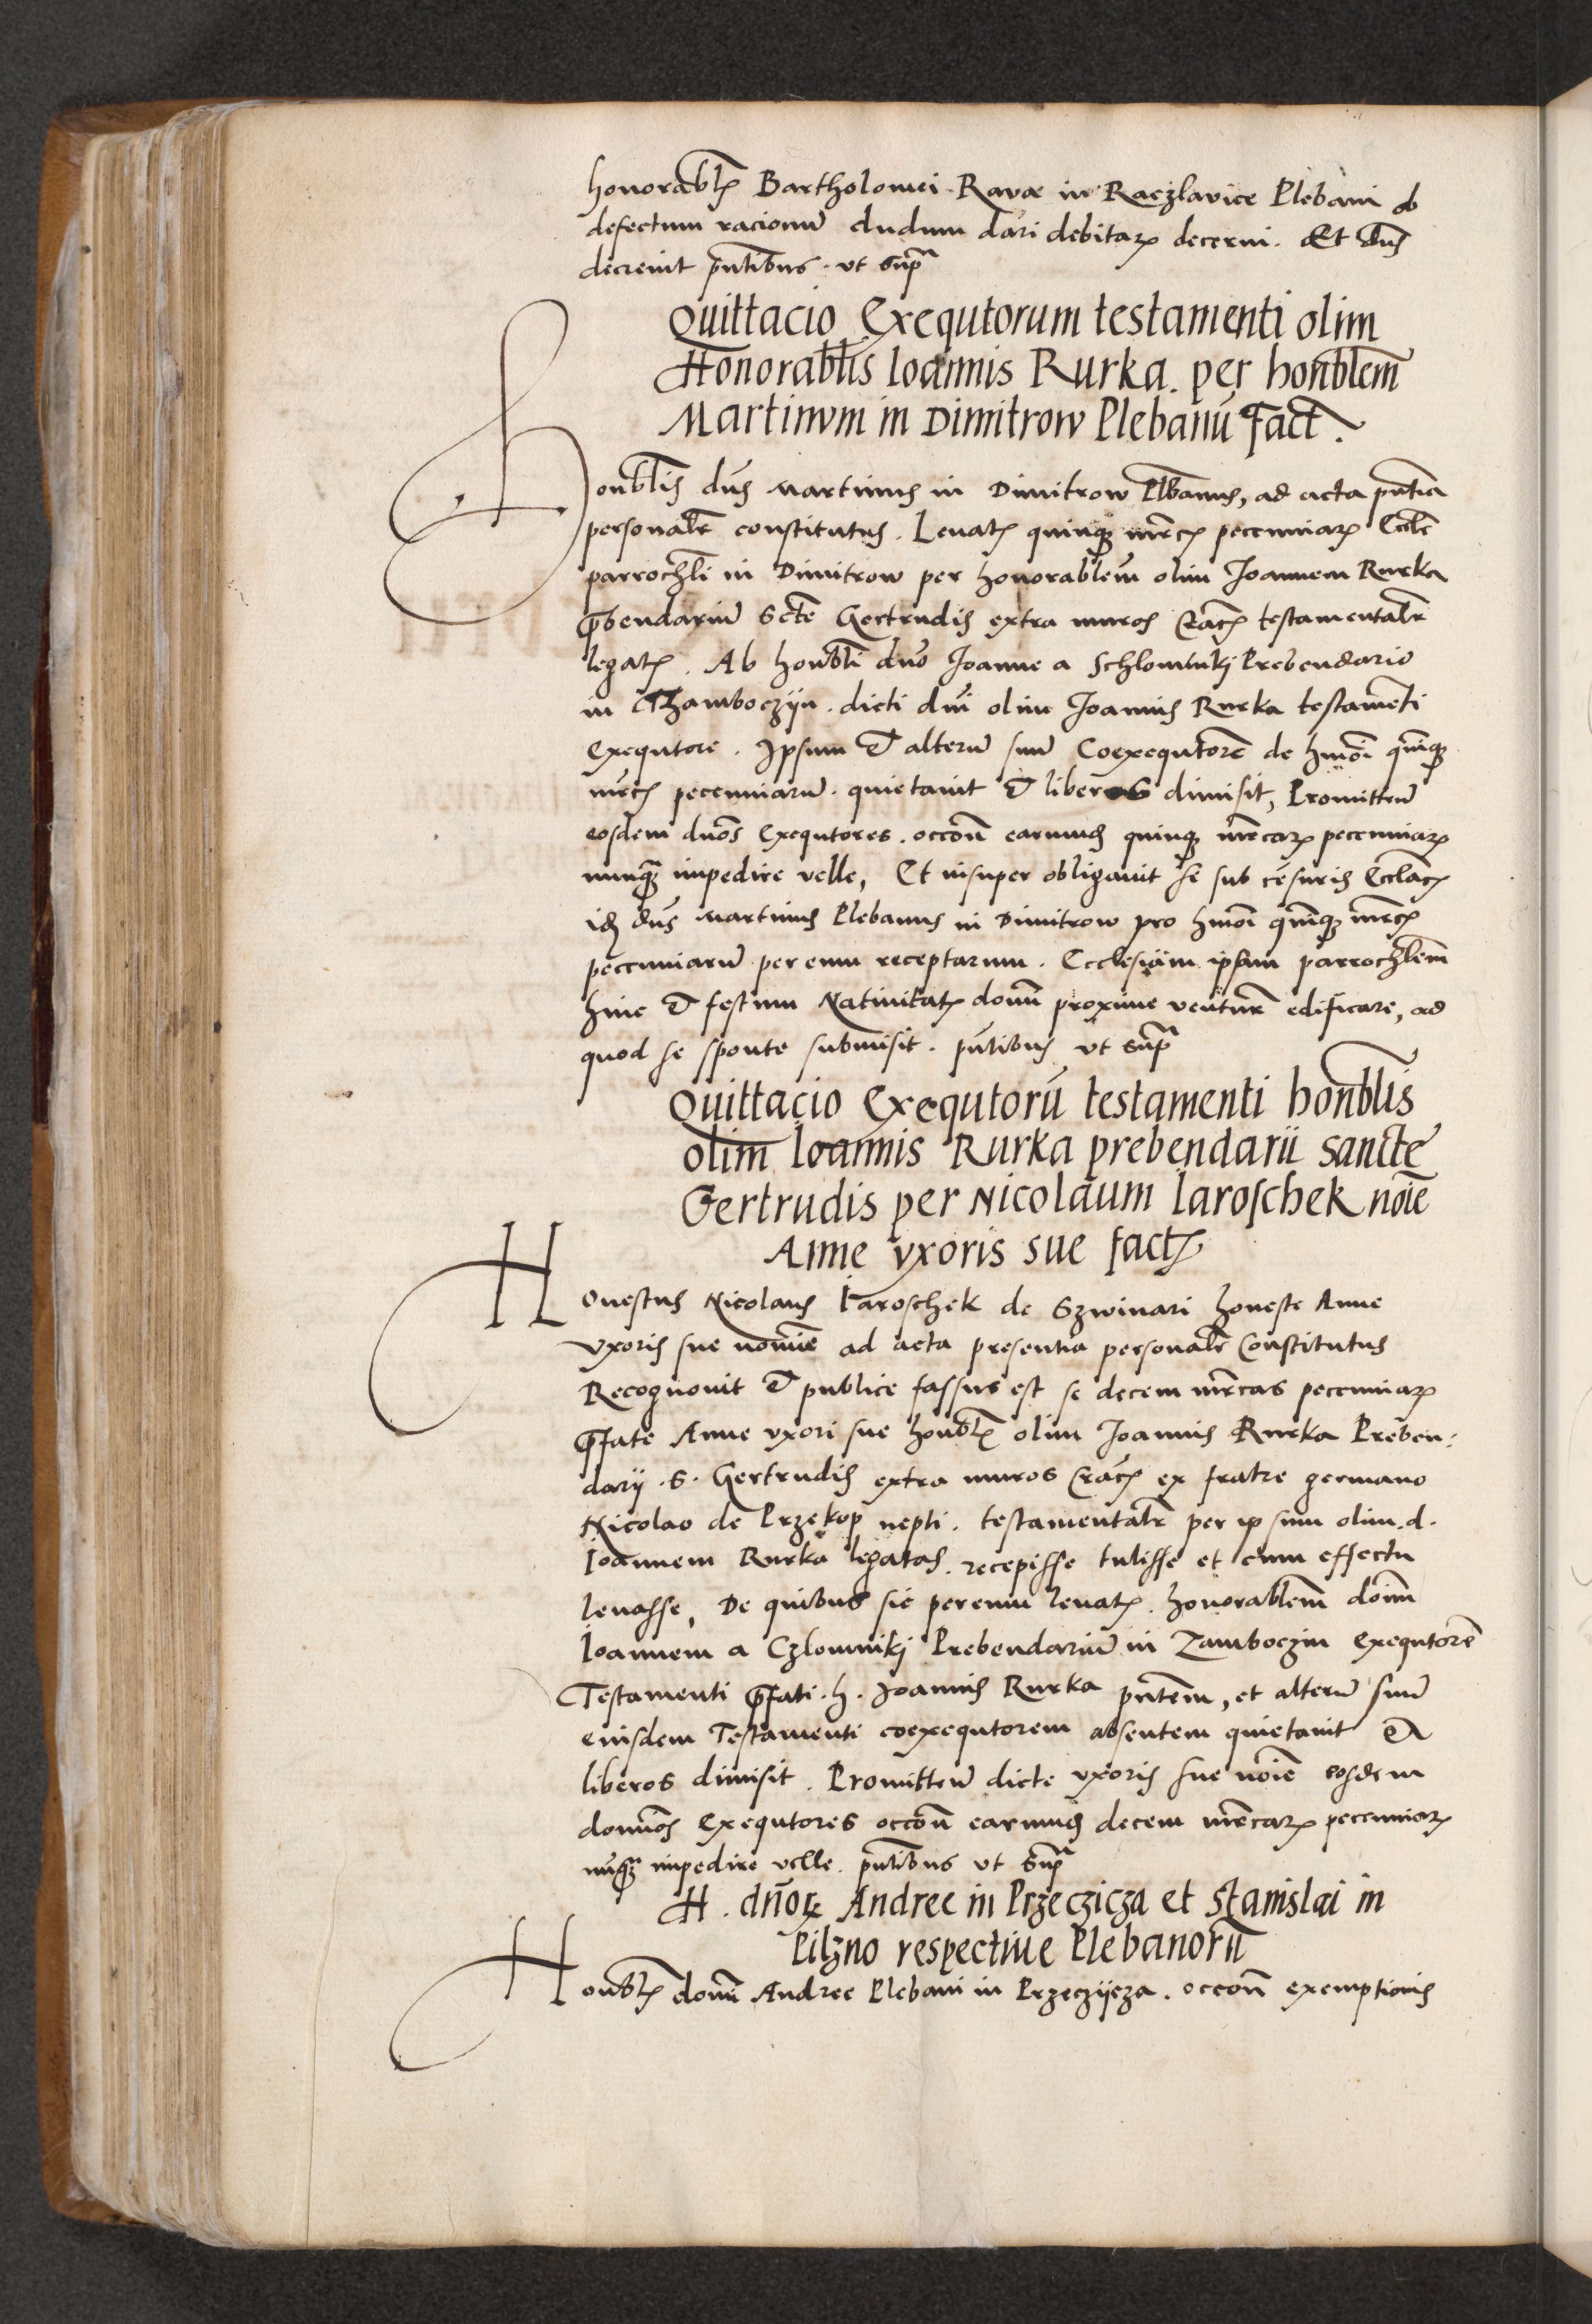 honorabl[is] Bartholomei Ravae in Raczlavice Plebani ob
defectum racionu[m] dudum dari debitar[um] decerni. Et d[omi]n[u]s
decrevit p[raese]ntibus. ut sup[ra]
Quittacio Exequtorum testamenti olim
Honorab[i]lis Ioannis Rurka. per hon[ora]b[i]lem
Martinum in Dimitrow Plebanu[m] fact[a].
Honorab[i]lis d[omi]n[u]s Martinus in Dimitrow Pleb[a]nus, ad acta p[raese]ntia
personal[ite]r constitutus. Levat[is] quinq[ue] m[a]rcis pecuniar[um] Eccl[esi]e
parrochi[a]li in Dimitrow per honorabilem olim Ioannem Rurka
p[re]bendariu[m] S[an]cte Gertrudis extra muros Crac[ovienses] testamental[ite]r
legat[is]. Ab hon[ora]b[i]li d[omi]no Ioanne a Schlomniki Prebendario
in Thamboczyn. dicti d[omi]ni olim Ioannis Rurka testame[n]ti
Exequtore. Ipsum et alteru[m] suu[m] Coexequtore[m] de h[uius]mo[d]i quinq[ue]
m[a]rcis pecuniaru[m]. quietavit et liberos dimisit, Promitten[do]
eosdem d[omi]nos Exequtores. occ[asi]one earumd[em] quinq[ue] m[a]rcar[um] pecuniar[um]
nunq[uam] impedire velle, Et insuper obligavit se sub ce[n]suris Eccl[esi]a[sti]cis
id[em] d[omi]n[u]s Martinus Plebanus in Dimitrow pro h[uius]mo[d]i quinq[ue] m[a]rcis
pecuniaru[m] per eum receptarum. Ecclesiam ipsam parrochi[a]lem
hinc et festum Nativitat[is] domi[ni] proxime ventur[um] edificare, ad
quod se sponte submisit. p[raese]ntibus ut sup[ra]
Quittacio Exequtoru[m] testamenti hon[ora]b[i]lis
olim Ioannis Rurka prebendarii sancte
Gertrudis per Nicolaum Iaroschek no[m]i[n]e
Anne uxoris sue fact[a]
Honestus Nicolaus Iaroschek de Szwinari honeste Anne
uxoris sue nomi[n]e ad acta presentia personal[ite]r Constitutus
Recognovit et publice fassus est se decem m[a]rcas pecuniar[um]
p[re]fate Anne uxori sue hon[ora]bl[is] olim Ioannis Rurka Preben-
darij. S. Gertrudis extra muros Crac[ovienses] ex fratre germano
Nicolao de Przekop nepti. testamental[ite]r per ipsum olim. d.
Ioannem Rurka legatas. recepisse tulisse et cum effectu
levasse, De quibus sic per eum levat[is]. honorabilem do[m]i[nu]m
Ioannem a Czlomniki Prebendariu[m] in Zamboczin exequtore[m]
Testamenti p[re]fati. h. Ioannis Rurka p[raese]ntem, et alteru[m] suu[m]
eiusdem Testamenti coexequtorem absentem quietavit et
liberos dimisit. Promitten[do] dicte uxoris sue no[m]i[n]e eosdem
domi[n]os Exequtores occ[asi]one earumd[em] decem m[a]rcar[um] pecuniar[um]
nu[n]q[uam] impedire velle. p[raese]ntibus ut sup[ra]
H. d[omi]nor[um] Andree in Przeczicza et Stanislai in
Pilzno respective Plebanoru[m]
Hon[ora]bl[is] domi[ni] Andree Plebani in Przeczijcza. occ[asi]one exemptionis